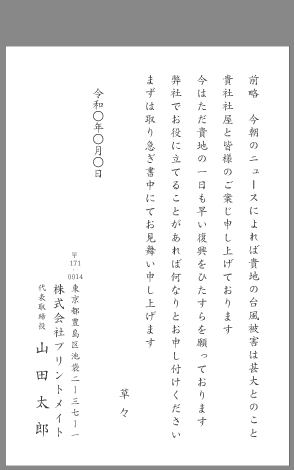 前略　今朝のニュースによれば貴地の台風被害は甚大とのこと
貴社社屋と皆様のご案じ申し上げております
今はただ貴地の一日も早い復興をひたすらを願っております
弊社でお役に立てることがあれば何なりとお申し付けください
まずは取り急ぎ書中にてお見舞い申し上げます
草々
令和〇年〇月〇日
〒171-0014
東京都豊島区池袋二ー三七ー一
株式会社プリントメイト
代表取締役　山田太郎